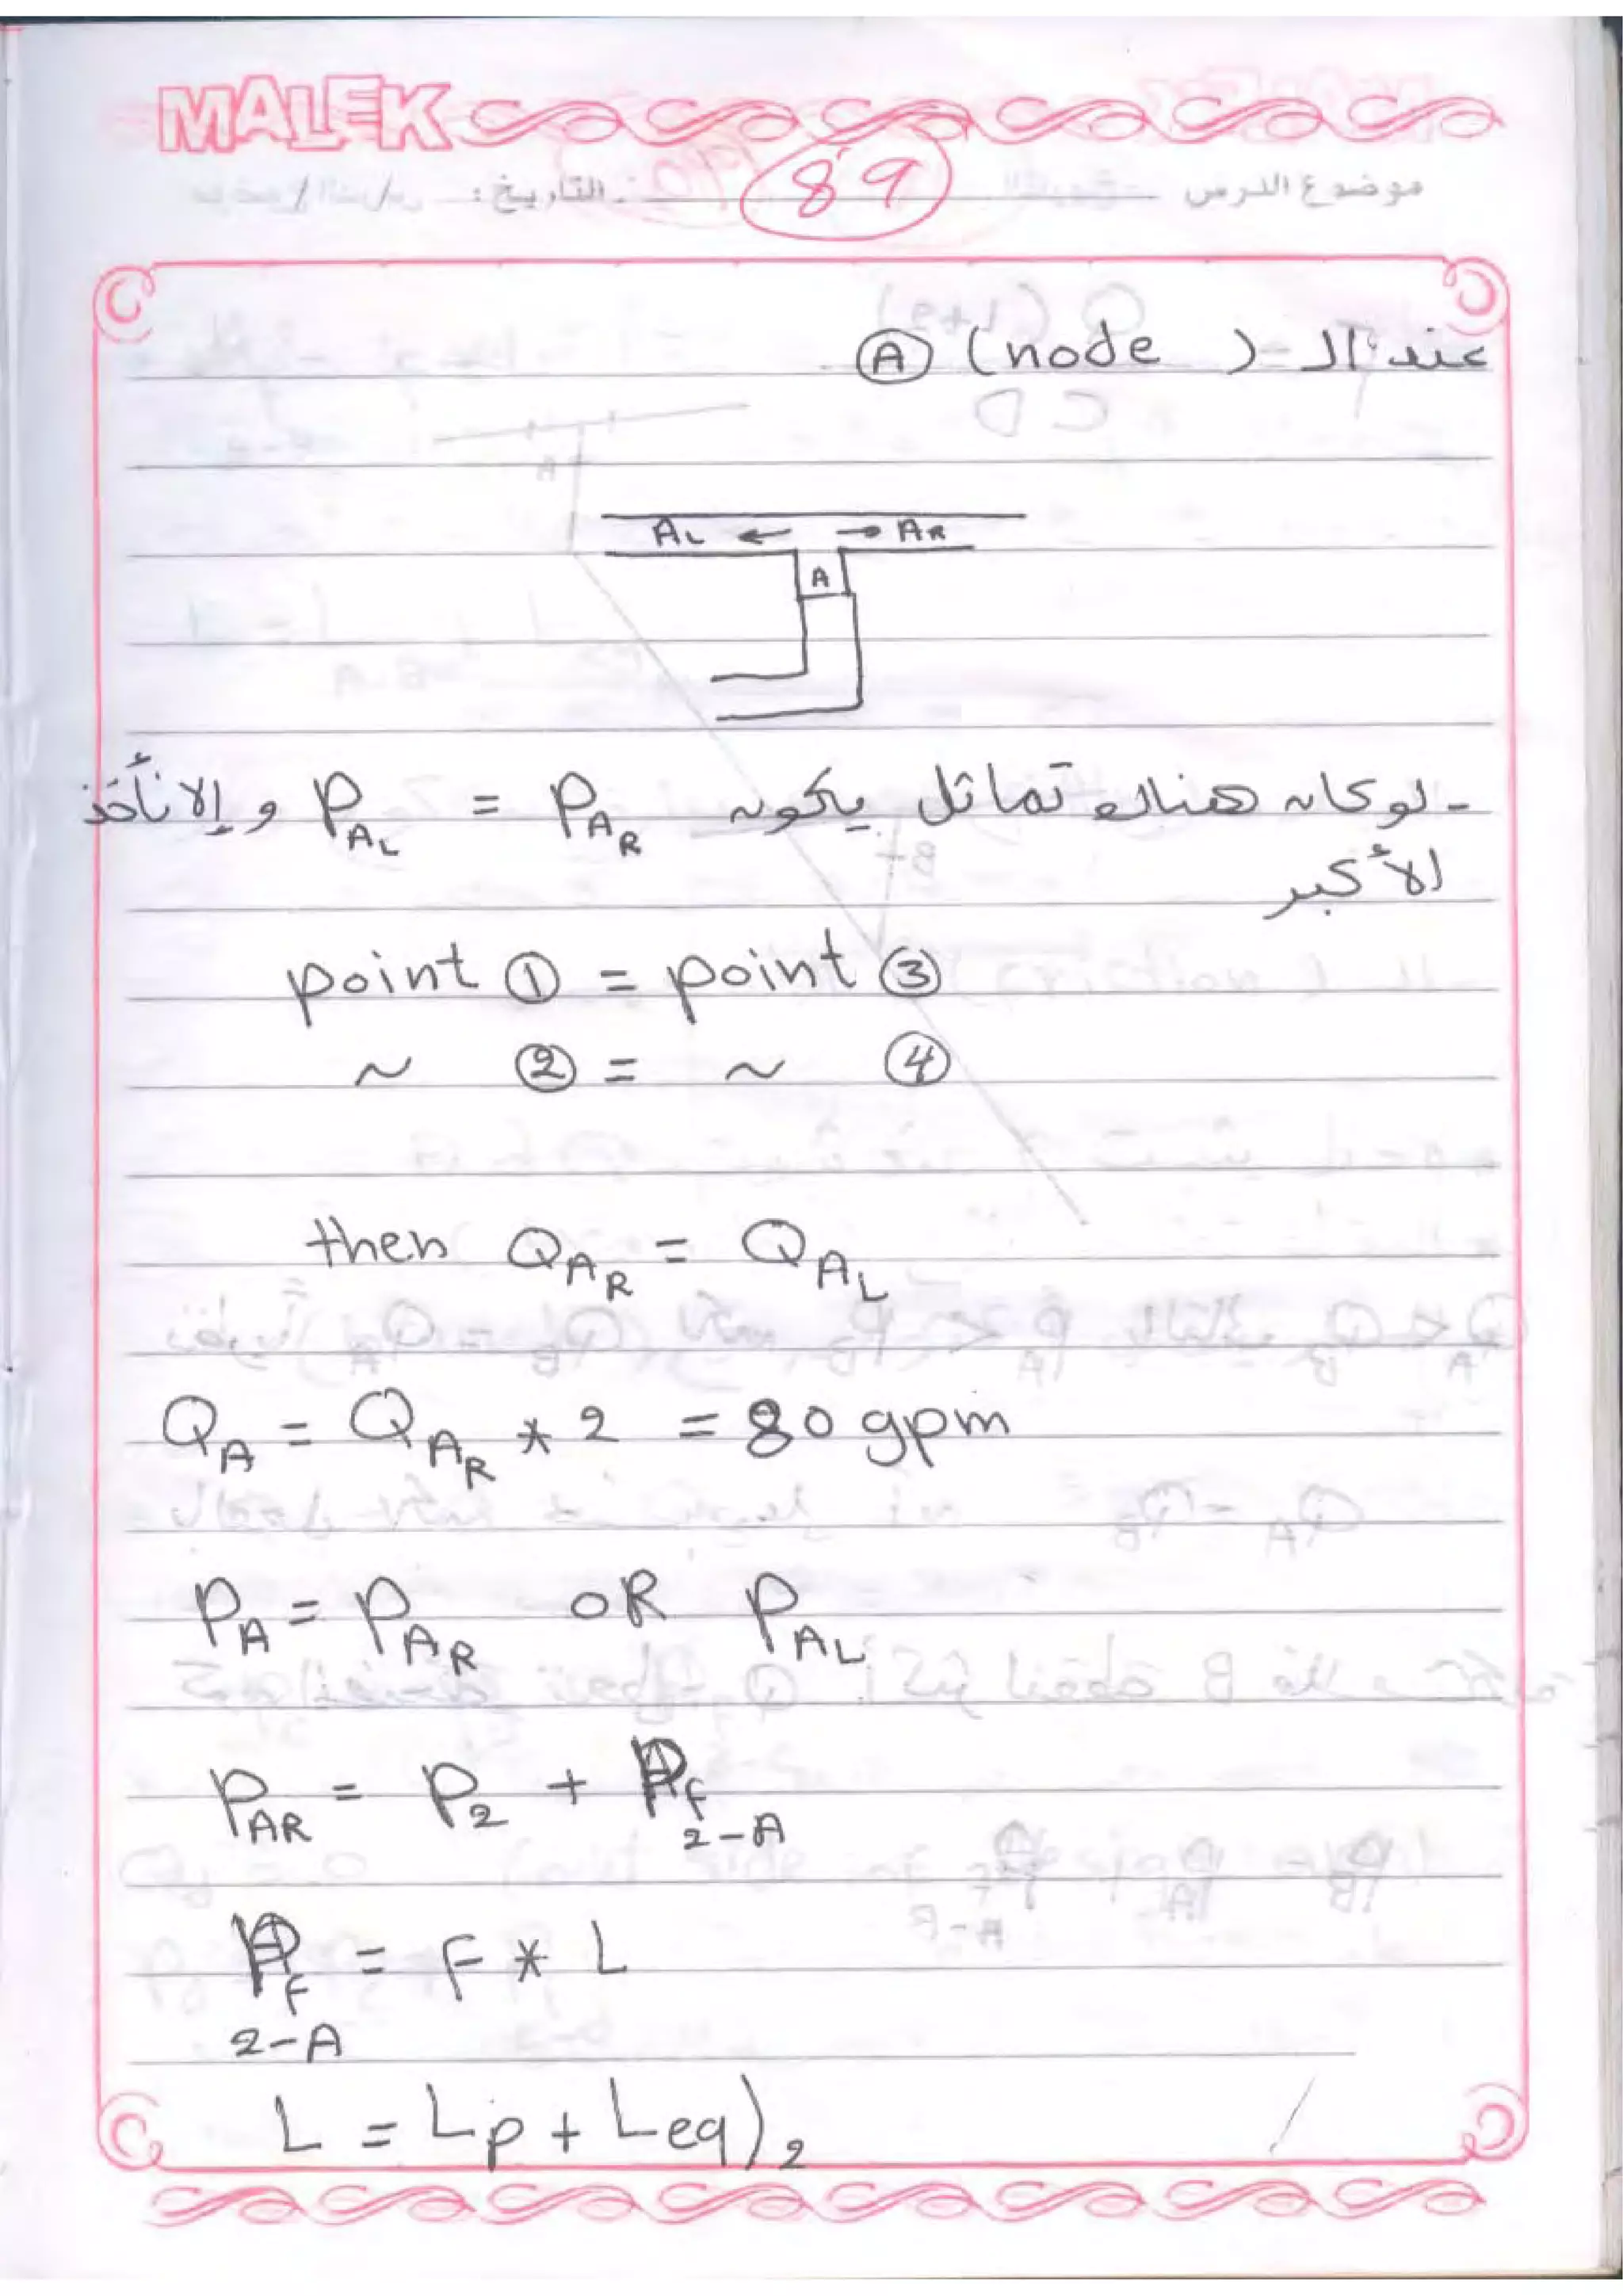 MALEK
موضوع الدرس 89 التاريخ :
عند الـ (node) Ⓐ
AL ← → AR
A
- لو كان هناك تماثل يكون P_AR = P_AL و إلا نأخذ
الأكبر
point ① = point ③
~ ② = ~ ④
then Q_AR = Q_AL
Q_A = Q_AR * 2 = 80 gpm
P_A = P_AR OR P_AL
P_AR = P_2 + P_F 2-A
P_F 2-A = F * L
L = Lp + Leq)_2